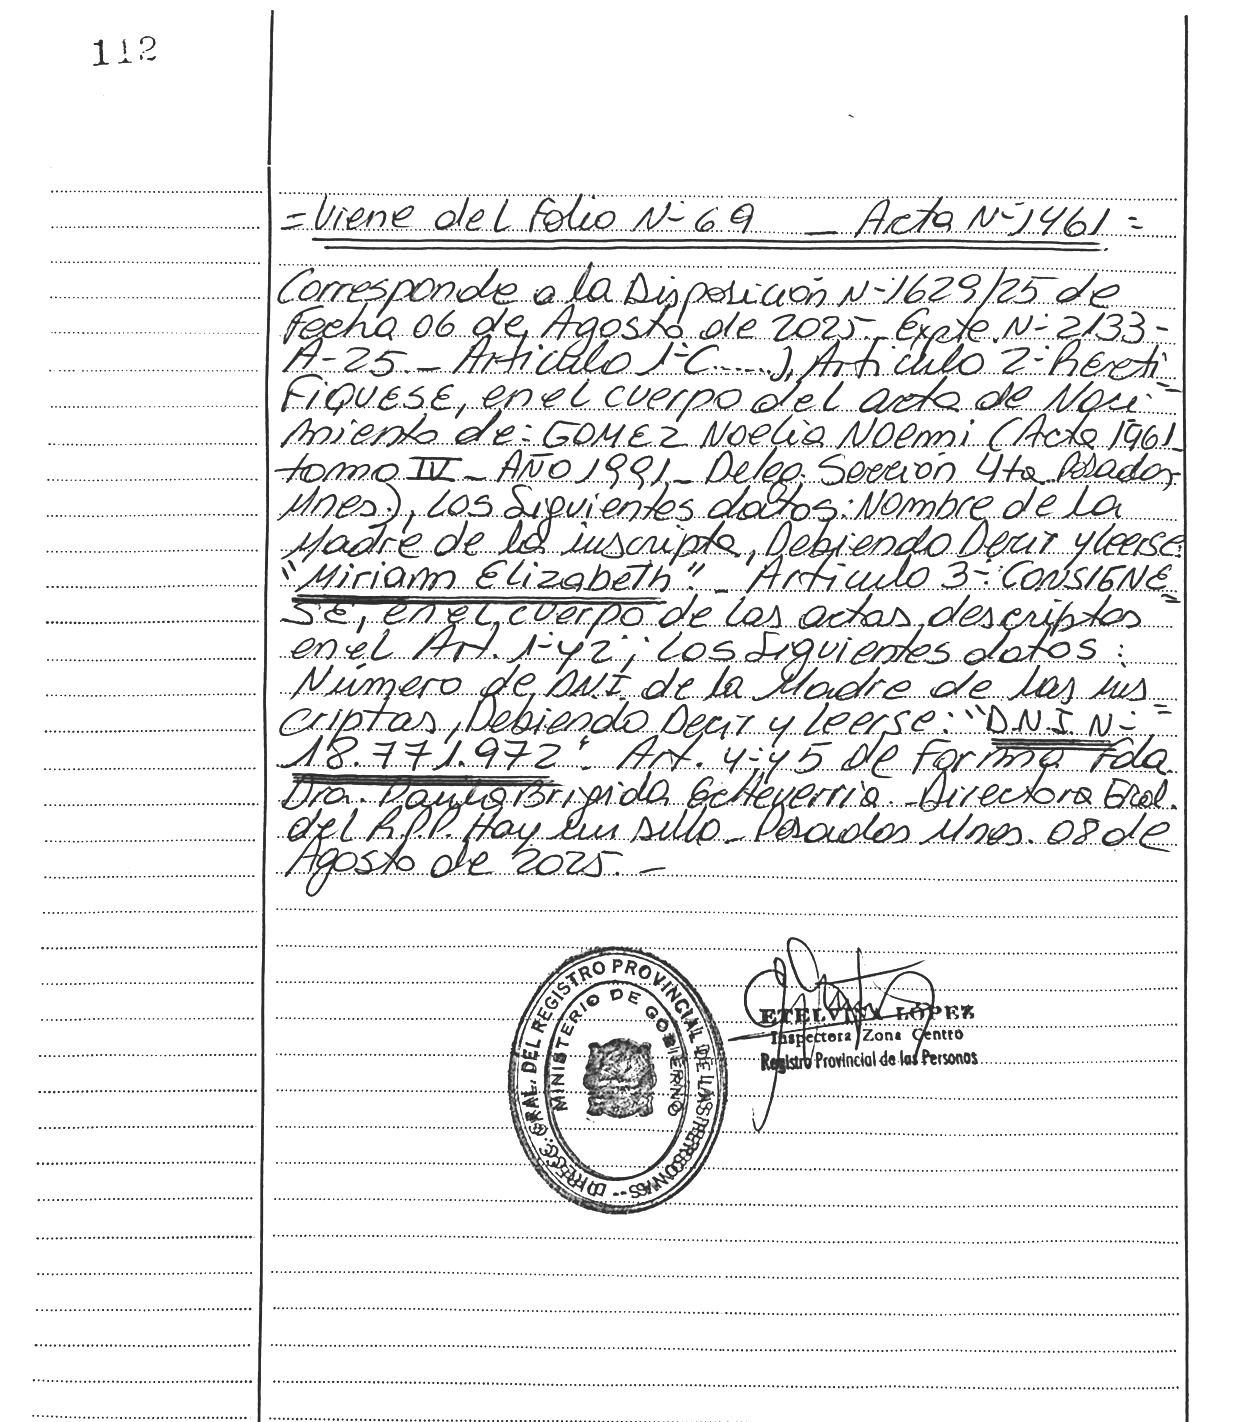 112
= Viene del Folio N- 69 _ Acta N- 1961 =
Corresponde a la Disposición N-1629/25 de
Fecha 06 de Agosto de 2025._ Expte. N- 2133-
A-25._ Artículo 1- C.....), Artículo 2- Recti
FIQUESE, en el cuerpo del acta de Naci =
miento de: GOMEZ Noelia Noemi (Acta 1961_
tomo IV_ AÑO 1991_ Deleg. Sección 4ta Posadas,
Mnes.), los Siguientes datos: Nombre de la
Madre de la inscripta, Debiendo Decir y leerse:
"Miriam Elizabeth"_ Artículo 3-: CONSIGNE =
SE, en el cuerpo de las actas descriptas
en el Art. 1- y 2-, los Siguientes datos:
Número de D.N.I. de la Madre de las ins =
criptas, Debiendo Decir y leerse: "D.N.I. N-
18.771.972". Art. 4- y 5 de Forma Fda.
Dra. Paula Brigida Echeverria._ Directora Gral.
del R.P.P. Hay un sello_ Posadas Mnes. 08 de
Agosto de 2025._
DIRECC. GRAL. DEL REGISTRO PROVINCIAL DE LAS PERSONAS --
MINISTERIO DE GOBIERNO
ETELVINA LOPEZ
Inspectora Zona Centro
Registro Provincial de las Personas